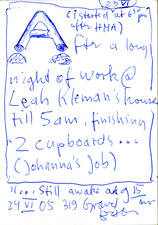 23 VI
(started at 6 pm
after HMA)
After a long
night of work @
Leah Kleman's house
till 5am, finishing
2 cupboards...
(Johanna's job)
"... Still awake at 9 15
24 VI 05 319 Grand